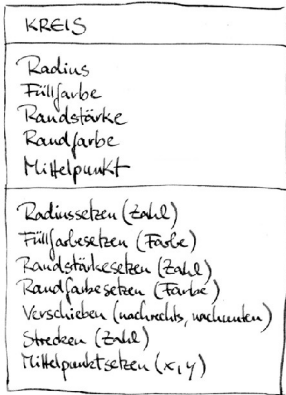 KREIS
Radius
Füllfarbe
Randstärke
Randfarbe
Mittelpunkt
Radiussetzen (Zahl)
Füllfarbesetzen (Farbe)
Randstärkesetzen (Zahl)
Randfarbesetzen (Farbe)
Verschieben (nachrechts, nachunten)
Strecken (Zahl)
Mittelpunktsetzen (x, y)